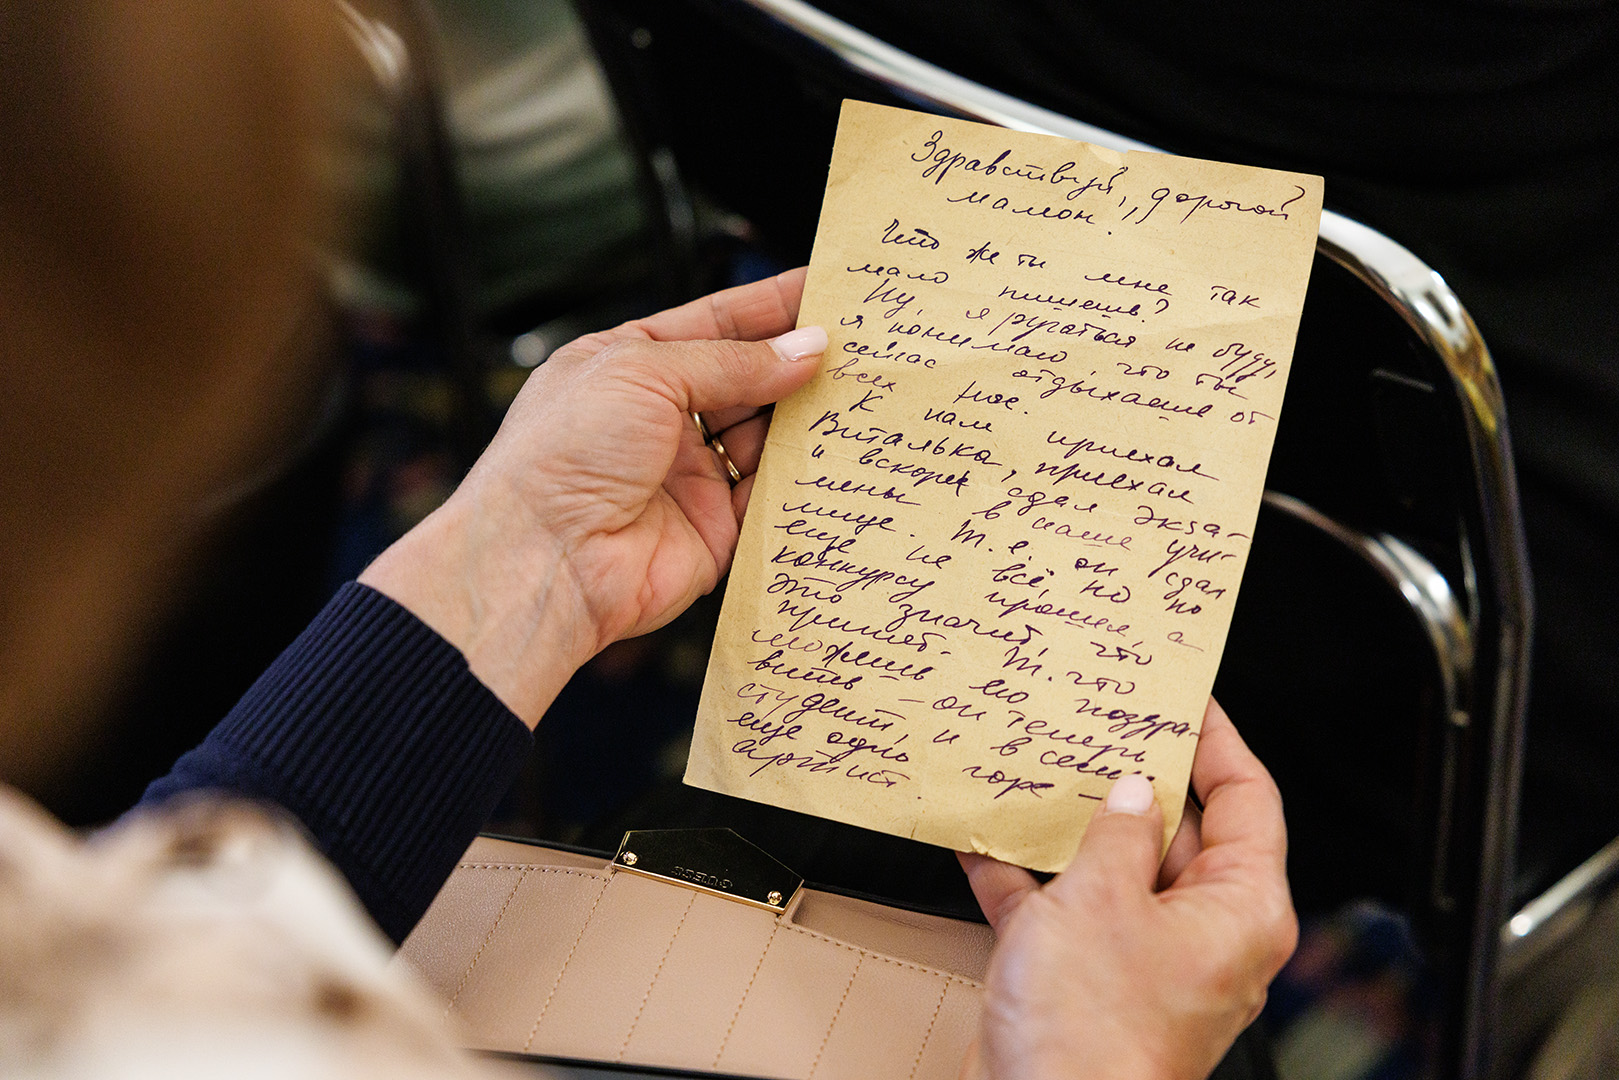 Здравствуй, дорогой
мамон!
Что же ты мне так
мало пишешь?
Ну, я ругаться не буду,
я понимаю, что ты
сейчас отдыхаешь от
всех нас.
К нам приехал
Виталька, приехал
и вскоре сдал экза-
мены в наше учи-
лище. Т.е. он сдал
ещё не всё, но по
конкурсу прошел, а
это значит, что
примет. Т.что
можешь его поздра-
вить – он теперь
студент, и в семье
еще одно горе –
артист.
GUESS